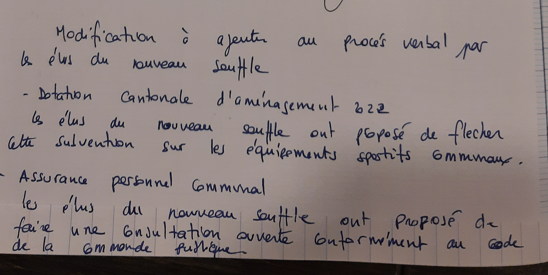 Modification à ajouter au procés verbal par
les élus du nouveau souffle
- Dotation Cantonale d'aménagement 2022
les élus du nouveau souffle ont proposé de flecher
cette subvention sur les équipements sportifs communaux.
- Assurance personnel Communal
les élus du nouveau souffle ont proposé de
faire une consultation ouverte conformément au code
de la commande publique